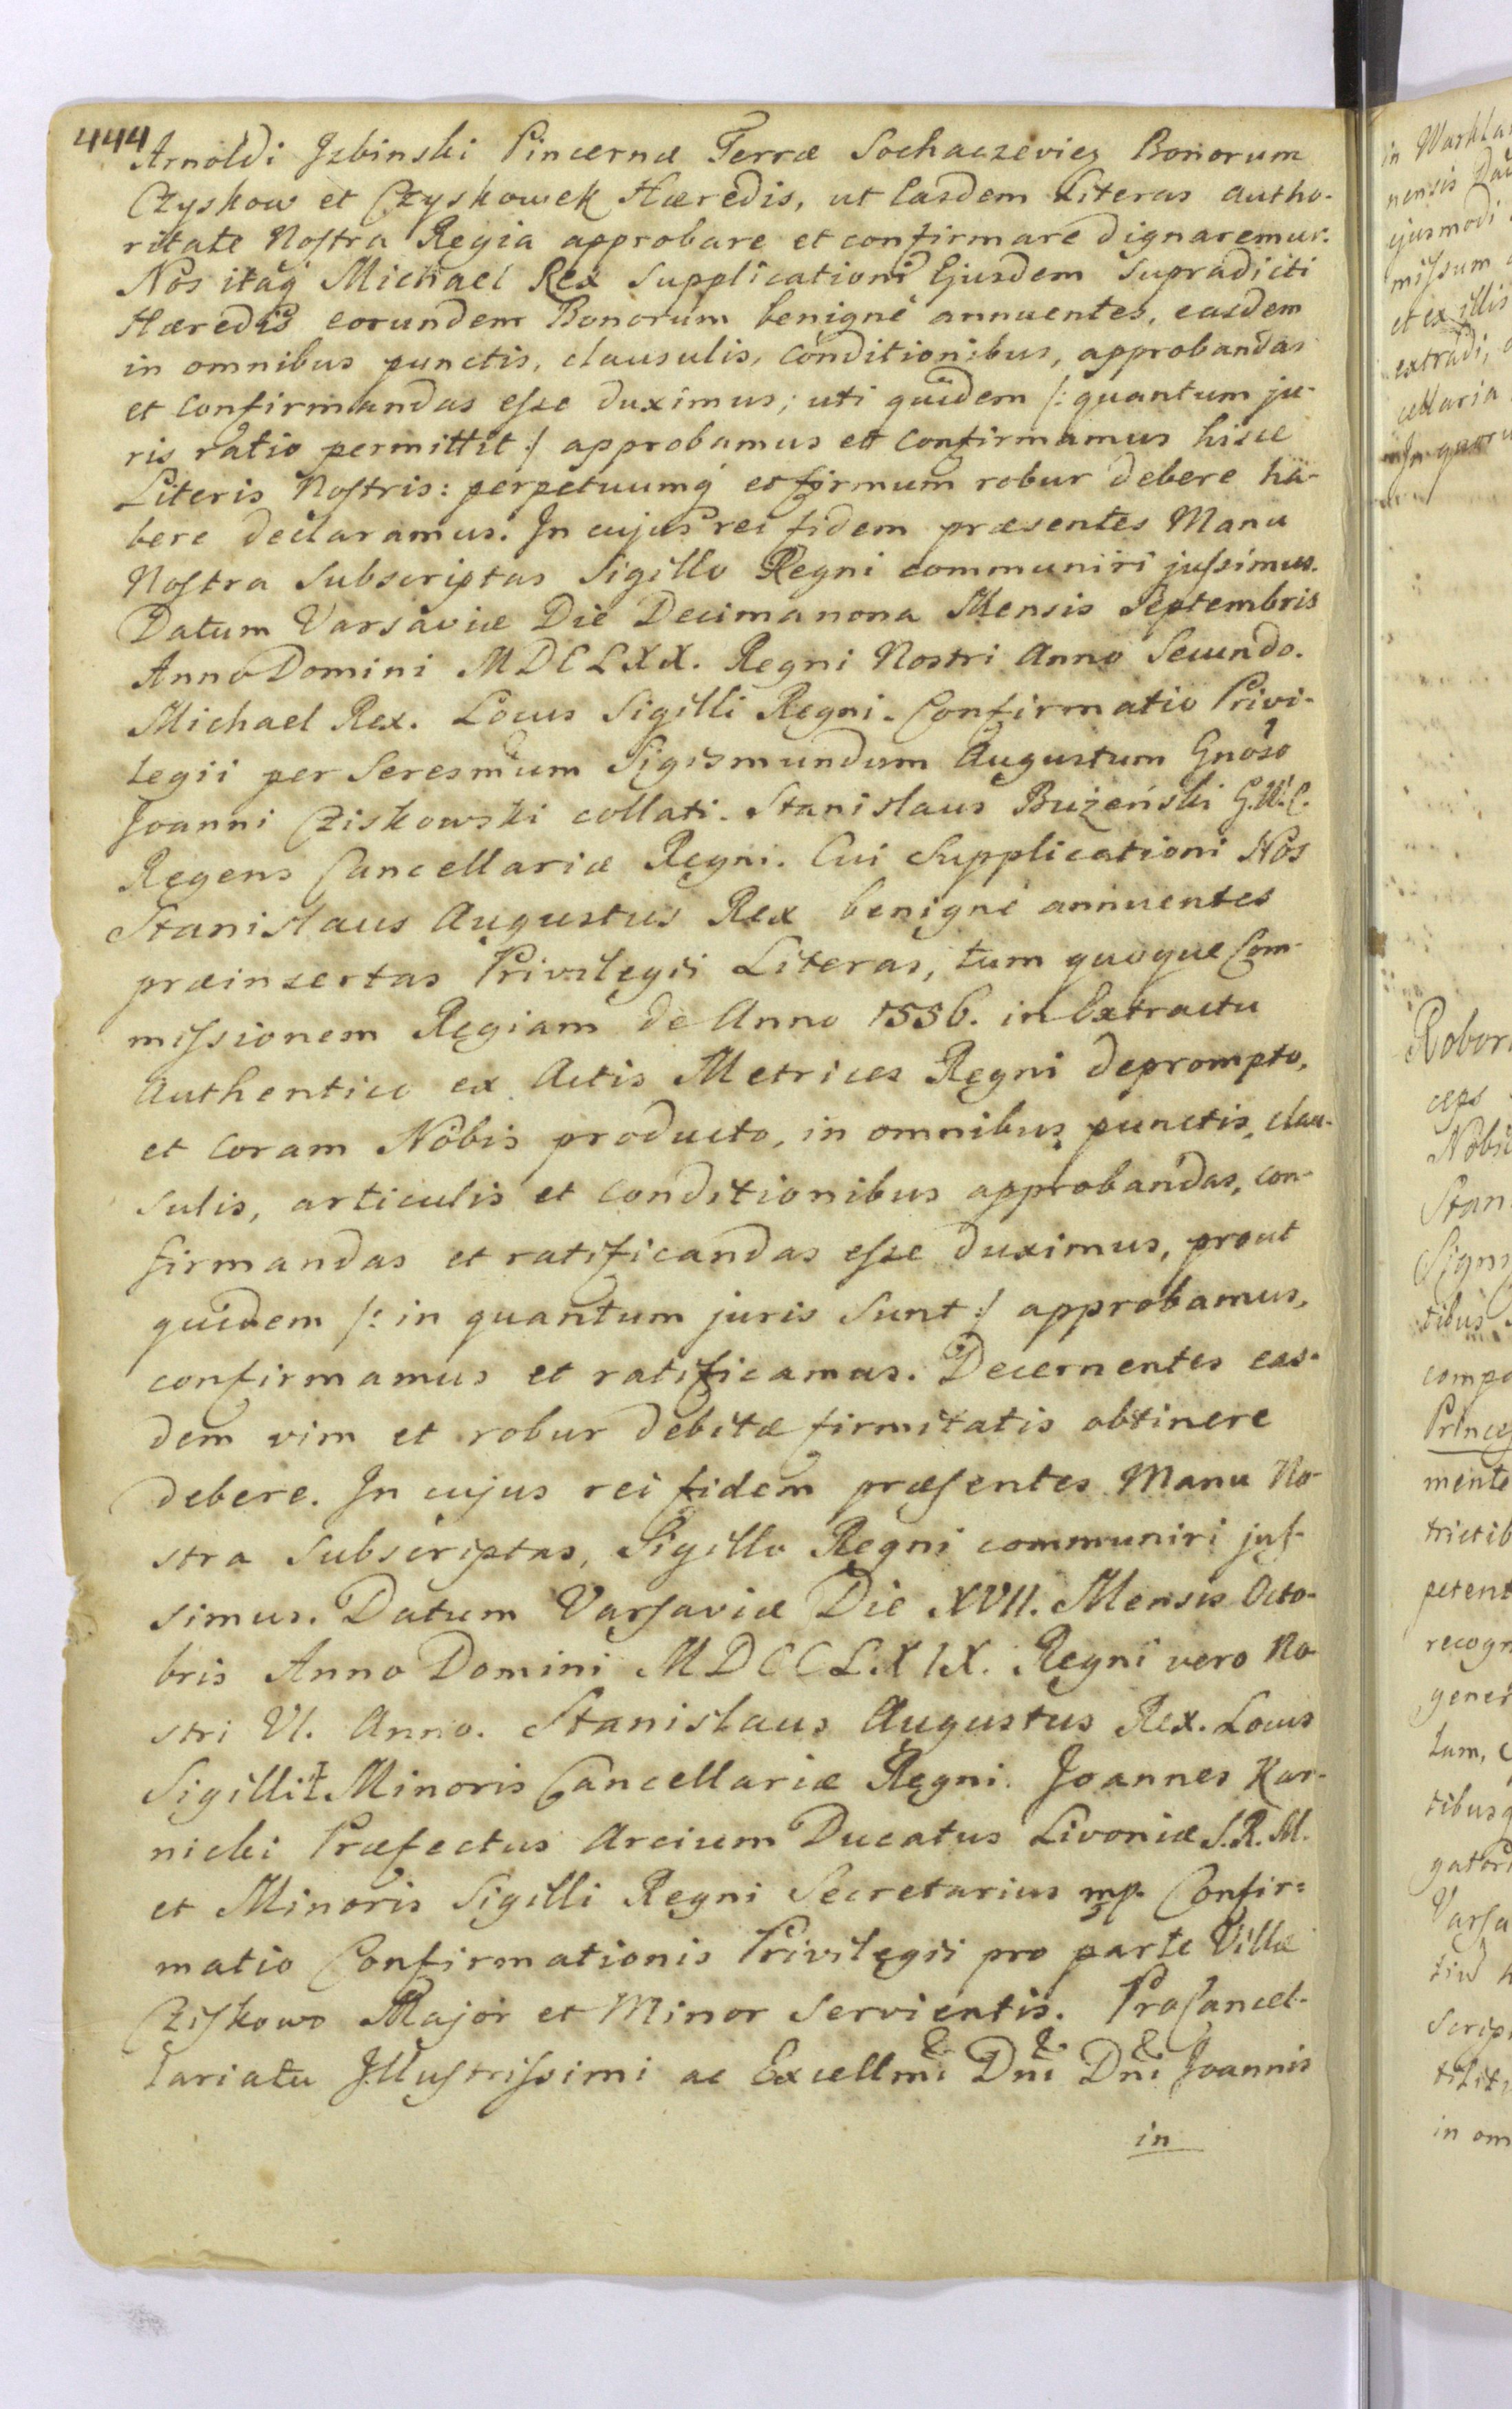 444
Arnoldi Jzbinski Pincernæ Terræ Sochaczeviez Bonorum
Czyskow et Czyskowek Hæredis, ut Easdem Literas autho-
ritate Nostra Regia approbare et confirmare dignaremur.
Nos itaq́ Michael Rex Supplicationi Ejusdem Supradicti
Hæredis eorundem Bonorum benignè annuentes, easdem
in omnibus punctis, clausulis, conditionibus, approbandas
et Confirmandas esse duximus; uti quidem /: quantum ju-
ris ratio permittit :/ approbamus et Confirmamus hisce
Literis Nostris: perpetuumq́ et firmum robur debere ha-
bere declaramus. Jn cujus rei fidem præsentes Manu
Nostra Subscriptas Sigillo Regni communiri jussimus.
Datum Varsaviæ Die Decimanona Mensis Septembris
Anno Domini MDCLXX. Regni Nostri Anno Secundo.
Michael Rex. Locus Sigilli Regni. Confirmatio Privi-
legii per Seresmum Sigismundum Augustum Gnoso
Joanni Cziskowski collati. Stanislaus Bużeński G.W.C.
Regens Cancellariæ Regni. Cui Supplicationi Nos
Stanislaus Augustus Rex benignè annuentes
præinsertas Privilegii Literas, tum quoque Com-
missionem Regiam de Anno 1556. in Extractu
Authentico ex Actis Metrices Regni deprompto,
et coram Nobis producto, in omnibus punctis, clau-
sulis, articulis et conditionibus approbandas, con-
firmandas et ratificandas esse duximus, prout
quidem /: in quantum juris sunt :/ approbamus,
confirmamus et ratificamus. Decernentes eas-
dem vim et robur debitæ firmitatis obtinere
debere. Jn cujus rei fidem præsentes Manu No-
stra Subscriptas, Sigillo Regni communiri jus-
simus. Datum Varsaviæ Die XVII. Mensis Octo-
bris Anno Domini MDCCLXIX. Regni vero No-
stri VI. Anno. Stanislaus Augustus Rex. Locus
Sigilli Minoris Cancellariæ Regni. Joannes Kar-
nicki Præfectus Arcium Ducatus Livoniæ S.R.M.
et Minoris Sigilli Regni Secretarius mp. Confir=
matio Confirmationis Privilegii pro parte Villæ
Cziskowo Major et Minor Servientis. ProCancel-
lariatu Jllustrissimi ac Excellmi Dni Dni Joannis
in